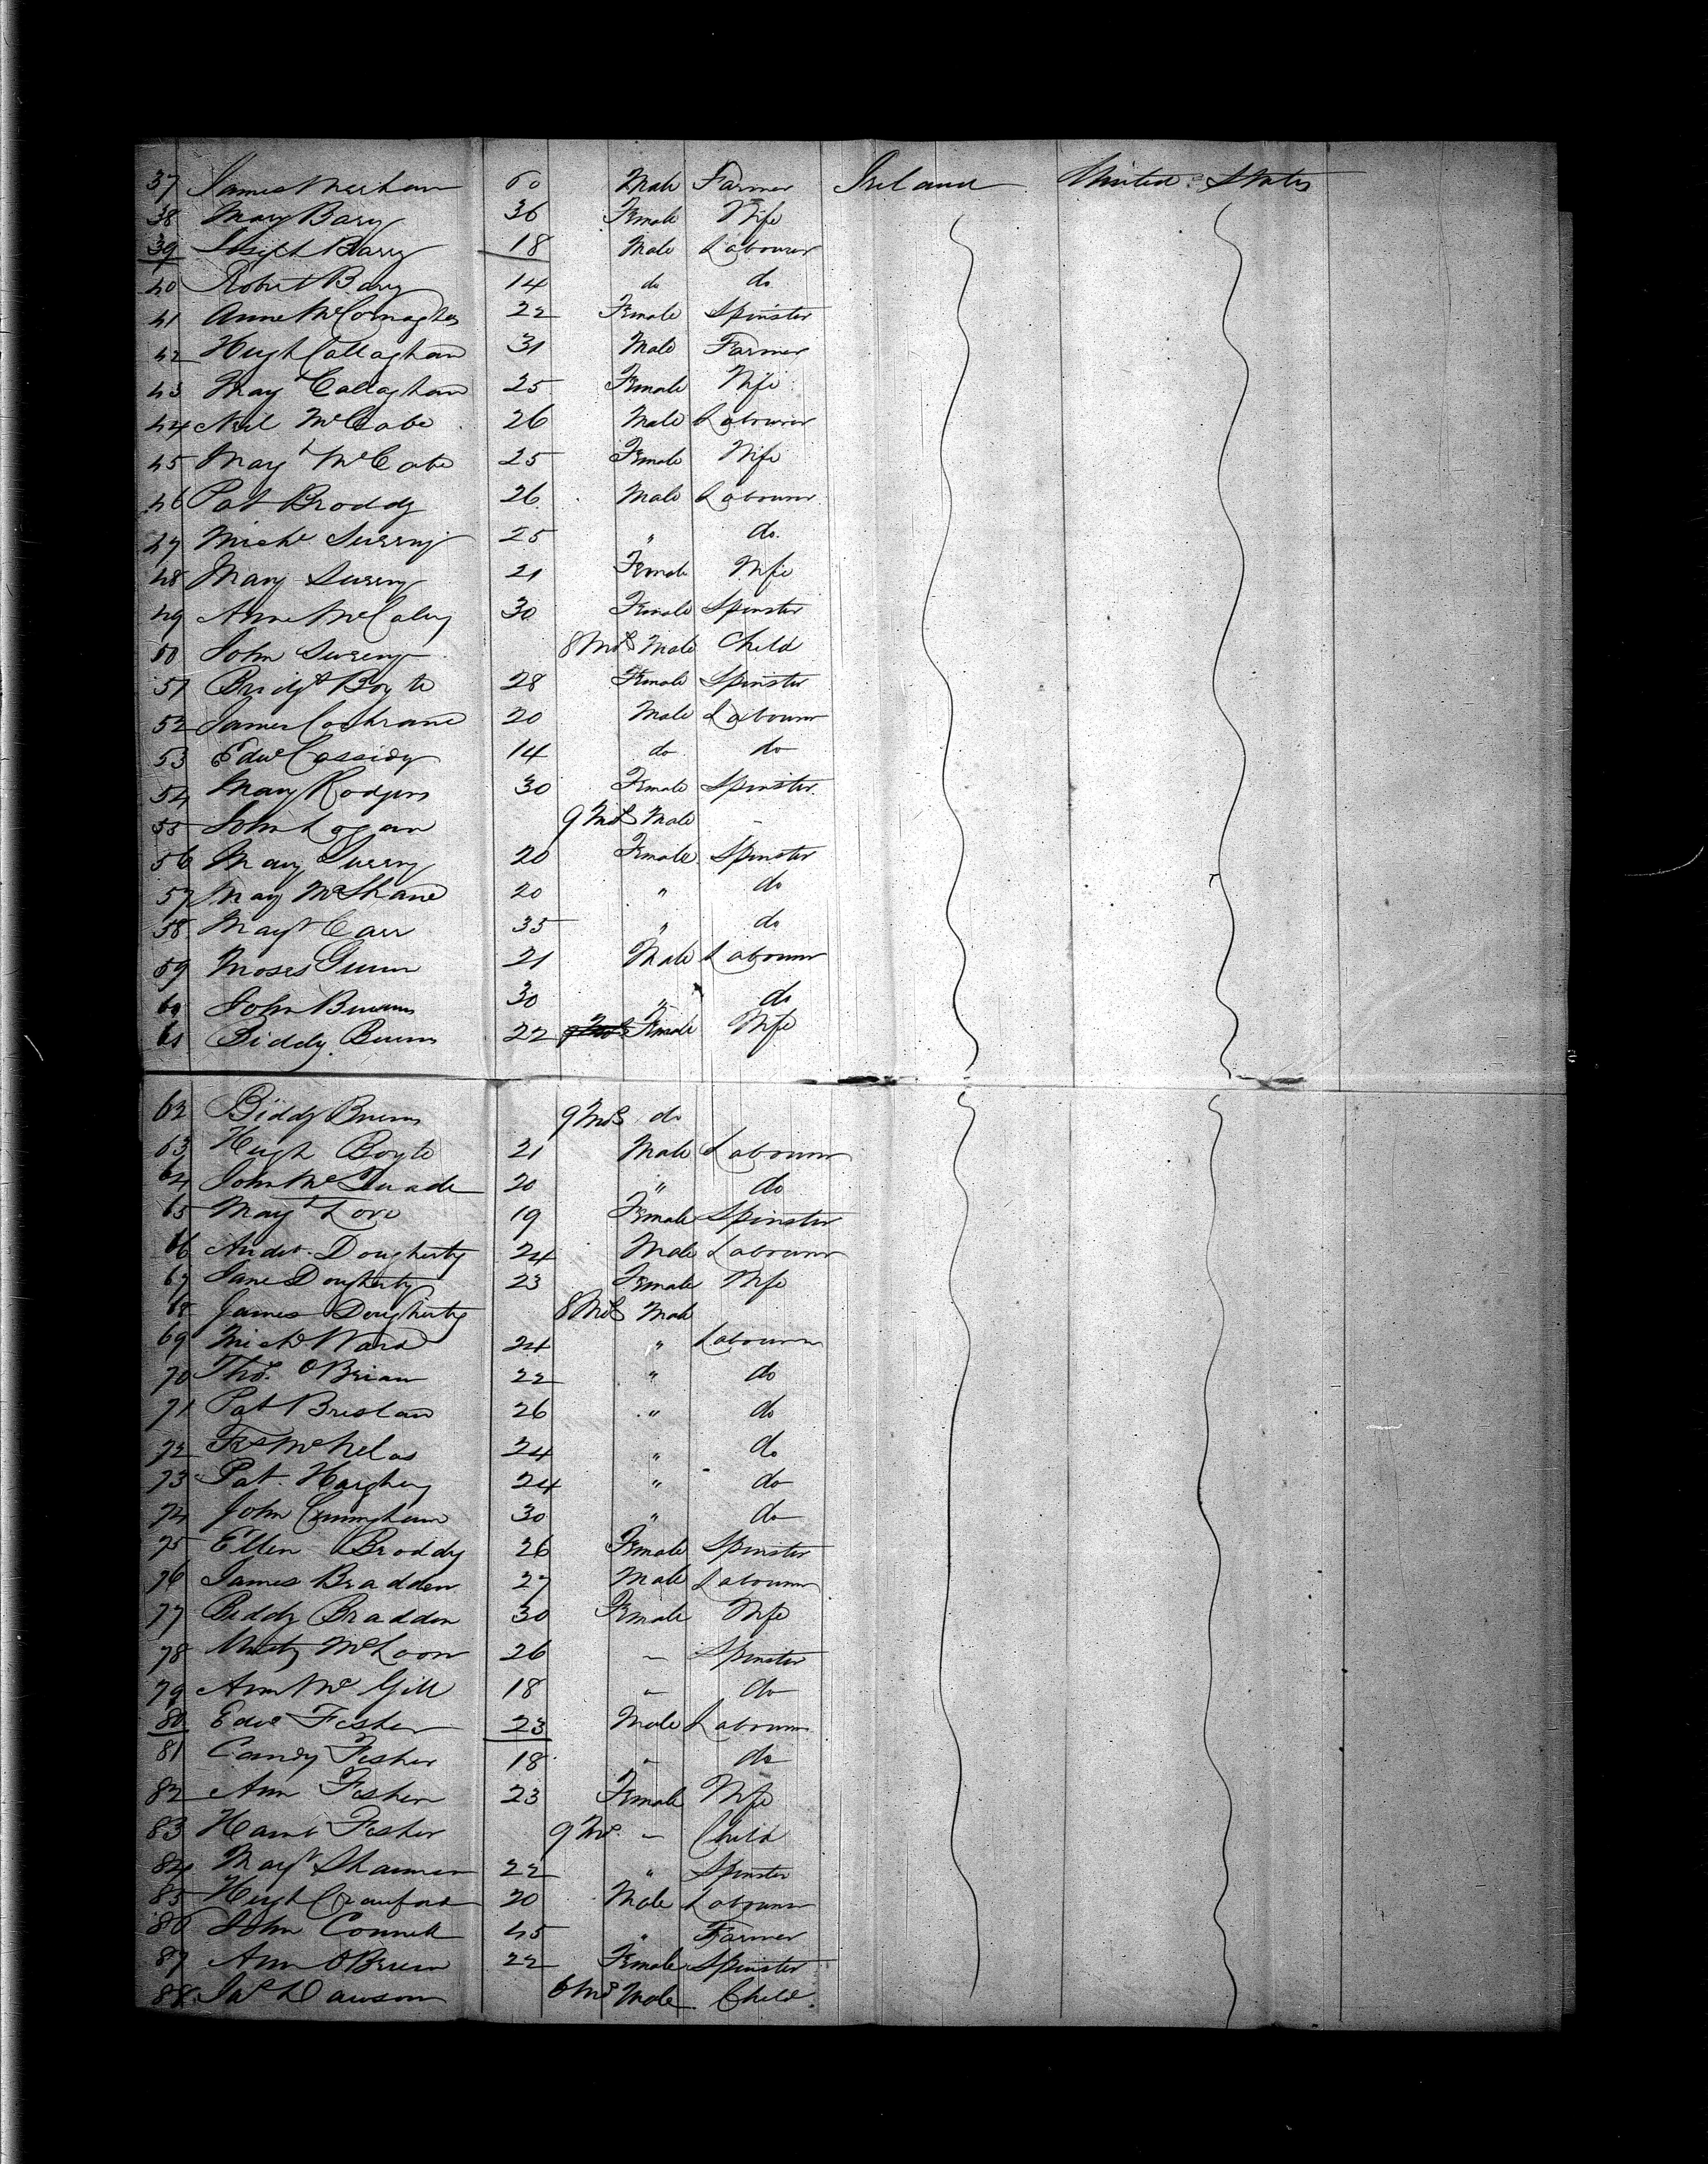 37 James Meehan 60 Male Farmer Ireland United States
38 Mary Bary 36 Female Wife
39 Joseph Barry 18 Male Labourer
40 Robert Bary 14 do do
41 Anne McConaghy 22 Female Spinster
42 Hugh Callaghan 31 Male Farmer
43 Mary Callaghan 25 Female Wife
44 Neil McCabe 26 Male Labourer
45 Mayt McCabe 25 Female Wife
46 Pat Broddy 26 Male Labourer
47 Michl 25 " do
48 Mary 21 Female Wife
49 Anne McCaley 30 Female Spinster
50 John 8 Mos Male Child
51 Bridgt Boyle 28 Female Spinster
52 James Cochrane 20 Male Labourer
53 Edwd Cassidy 14 do do
54 Mary Rodgers 30 Female Spinster
55 John Logan 9 Mos Male -
56 Mary 20 Female Spinster
57 Mary McShane 20 " do
58 Mayt Carr 35 " do
59 Moses Gunn 21 Male Labourer
60 John Burns 30 " do
61 Biddy Burns 22 Female Wife
62 Biddy Burns 9 Mos do
63 Hugh Boyle 21 Male Labourer
64 John McQuade 20 " do
65 Mayt Love 19 Female Spinster
66 Andw. Dougherty 24 Male Labourer
67 Jane Dougherty 23 Female Wife
68 James Dougherty 8 Mos Male
69 Michl Ward 24 " Labourer
70 Thos. OBrian 22 " do
71 Pat Breslan 26 " do
72 Frs McNelas 24 " do
73 Pat. Haughey 24 " do
74 John Cunningham 30 " do
75 Ellen Broddy 26 Female Spinster
76 James Bradden 27 Male Labourer
77 Biddy Bradden 30 Female Wife
78 McLoon 26 " Spinster
79 Ann McGill 18 " do
80 Edwd Fisher 23 Male Labourer
81 Candy Fisher 18 " do
82 Ann Fisher 23 Female Wife
83 Fisher 9 Mos " Child
84 Mayt Shannon 22 " Spinster
85 Hugh Crawford 20 Male Labourer
86 John Connell 45 " Farmer
87 Ann OBrien 22 Female Spinster
88 Jas Dawson 6 Mos Male Child